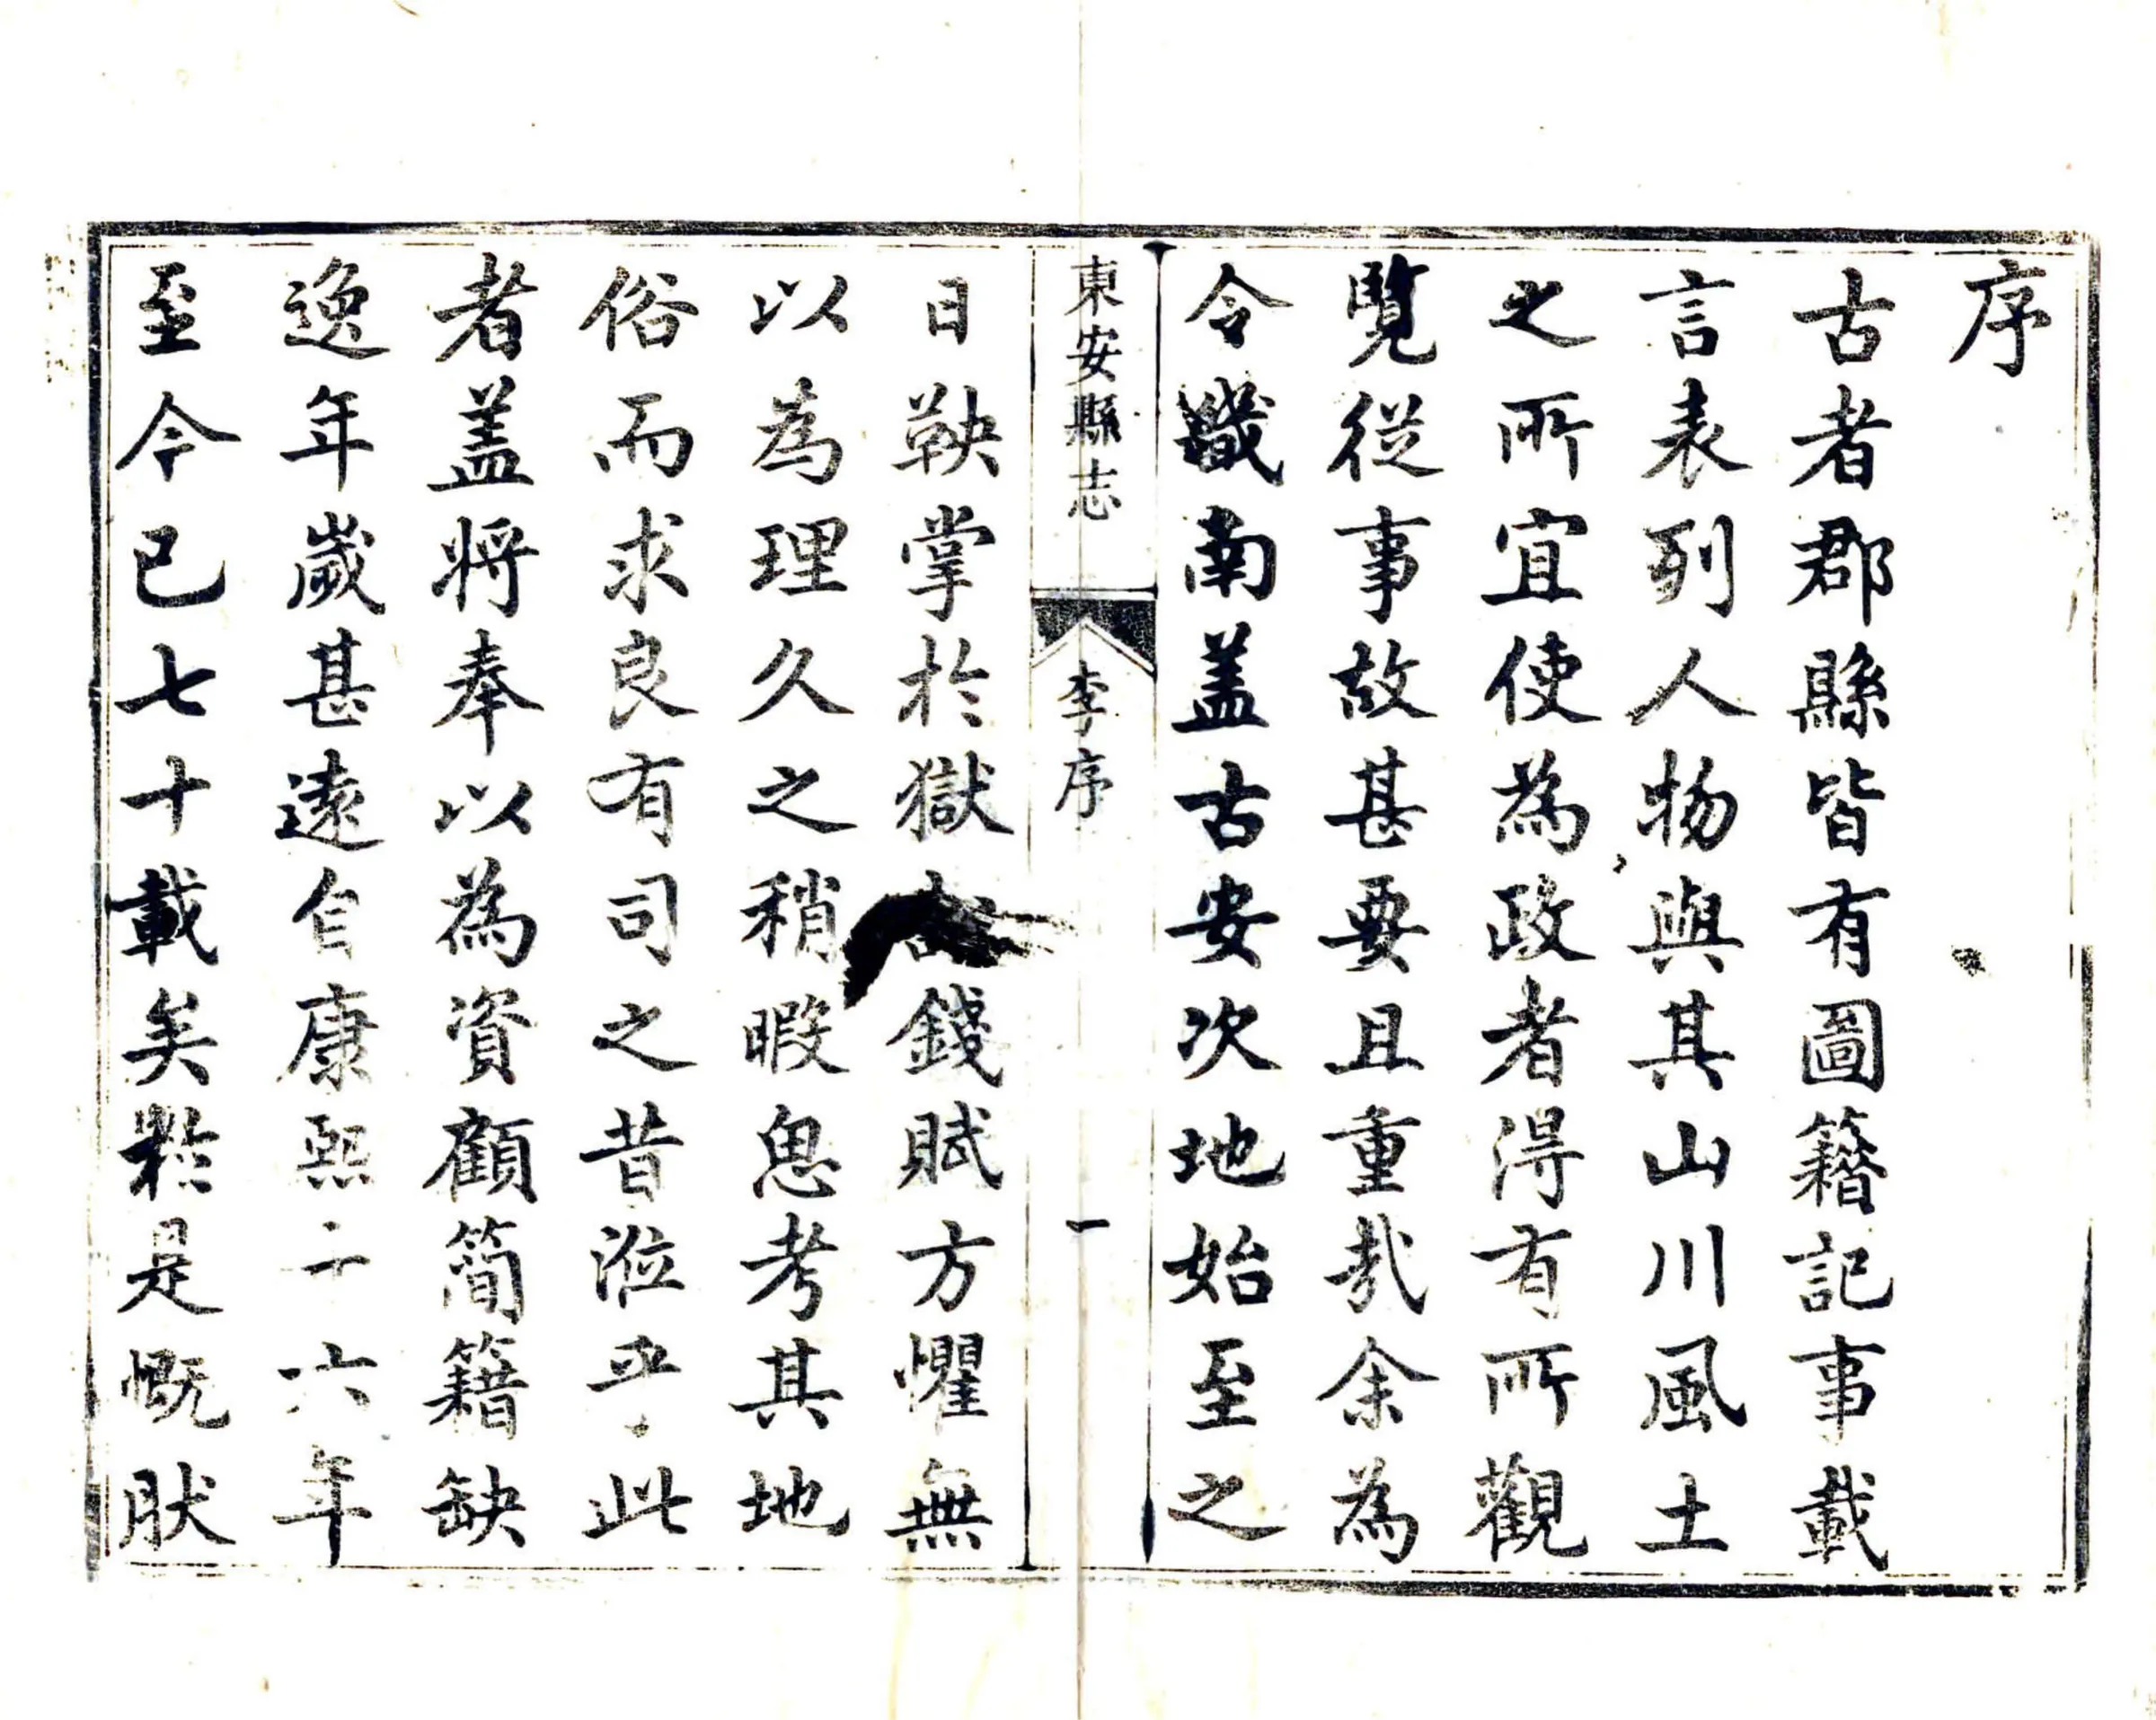 序
古者郡縣皆有圖籍記事載
言表列人物與其山川風土
之所宜使為政者得有所觀
覽從事故甚要且重哉余為
令畿南盖古安次地始至之
東安縣志 李序 一
日鞅掌於獄錢賦方懼無
以為理久之稍暇思考其地
俗而求良有司之昔涖乎此
者盖將奉以為資顧簡籍缺
逸年歲甚遠自康熙十六年
至今已七十載矣於是慨肰